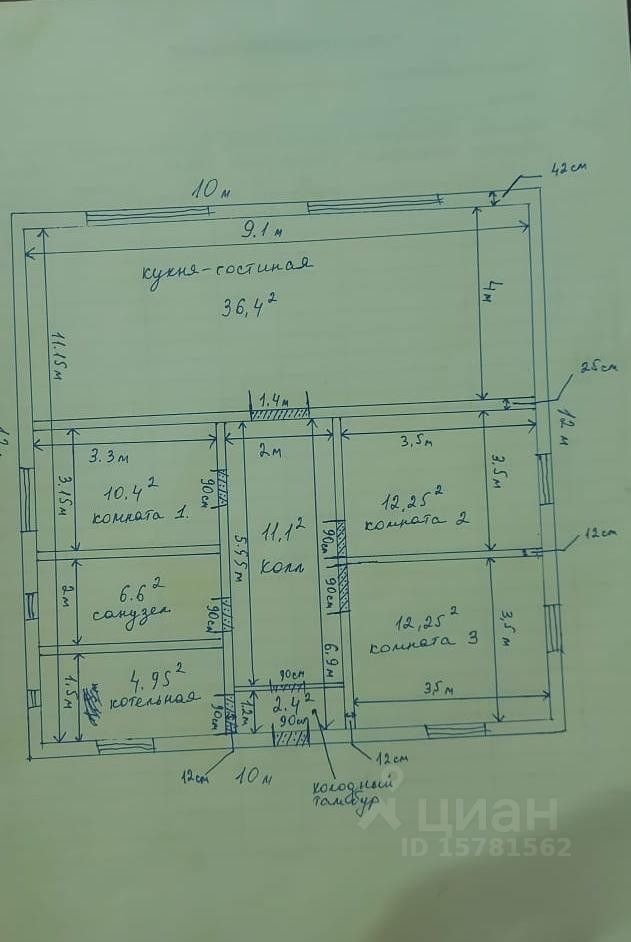 42см
10 м
9.1 м
кухня-гостиная
36,4²
4м
11.15м
25см
1.4м
12 м
3.3м
2м
3,5м
3.15м
10.4²
комната 1.
90см
3.5м
12,25²
комната 2
11,1²
холл
5.55м
90см
12см
2м
6.6²
санузел
90см
90см
12,25²
комната 3
3,5м
6.9м
1.5м
4.95²
котельная
90см
90см
1.2м
2.4²
90см
3.5м
12см
10м
12см
холодный
тамбур
циан
ID 15781562